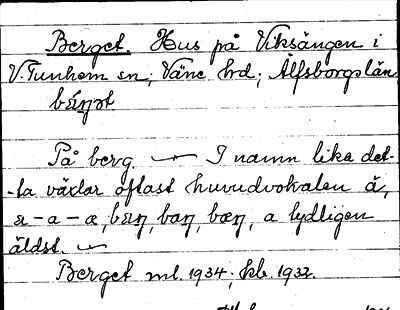 Berget. Hus på Viksängen i
V. Tunhem sn; Väne hrd; Älfsborgs län
På berg — I namn lika det-
-ta växlar oftast huvudvokalen ä,
a – a – æ, baŋ, bæŋ, a tydligen
äldst. —
Berget ml. 1934; kb. 1932.